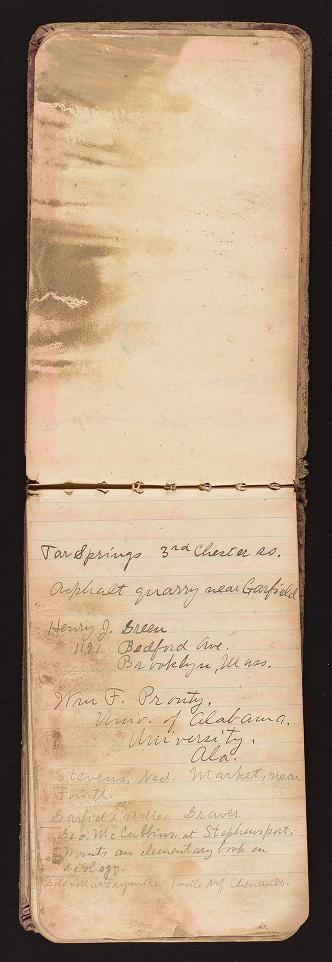 Tar Springs 3rd Chester ss.
Asphalt quarry near Garfield
Henry J. Green
1191 Bedford Ave.
Brooklyn, Mass.
Wm F. Prouty.
Univ. of Alabama.
University,
Ala.
Stevens, Med. Market, near
Fourth.
Garfield Graves
Geo. McCubbins at Stephensport,
Wants an elementary book on
Geology.
1 mile of Chenault.